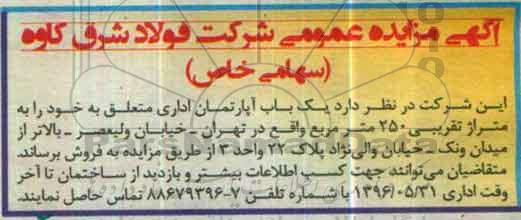 آگهی مزایده عمومی شرکت فولاد شرق کاوه
(سهامی خاص)
این شرکت در نظر دارد یک باب آپارتمان اداری متعلق به خود را به
متراژ تقریبی ۲۵۰ متر مربع واقع در تهران ـ خیابان ولیعصر ـ بالاتر از
میدان ونک ـ خیابان والی‌نژاد پلاک ۲۲ واحد ۳ از طریق مزایده به فروش برساند.
متقاضیان می‌توانند جهت کسب اطلاعات بیشتر و بازدید از ساختمان تا آخر
وقت اداری ۱۳۹۶/۰۵/۳۱ با شماره تلفن ۷-۸۸۶۷۹۳۹۶ تماس حاصل نمایند.